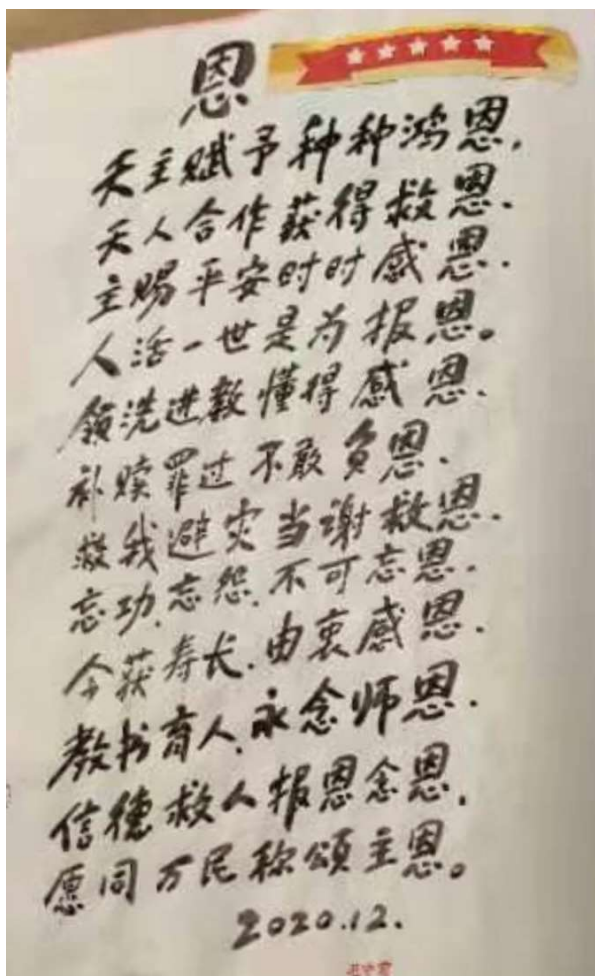 恩
天主赋予种种鸿恩,
天人合作获得救恩.
主赐平安时时感恩.
人活一世是为报恩。
领洗进教懂得感恩.
补赎罪过不敢负恩.
救我避灾当谢救恩.
忘功.忘怨.不可忘恩.
今获寿长.由衷感恩.
教书育人.永念师恩.
信德救人报恩念恩,
愿同万民称頌主恩。
2020.12.